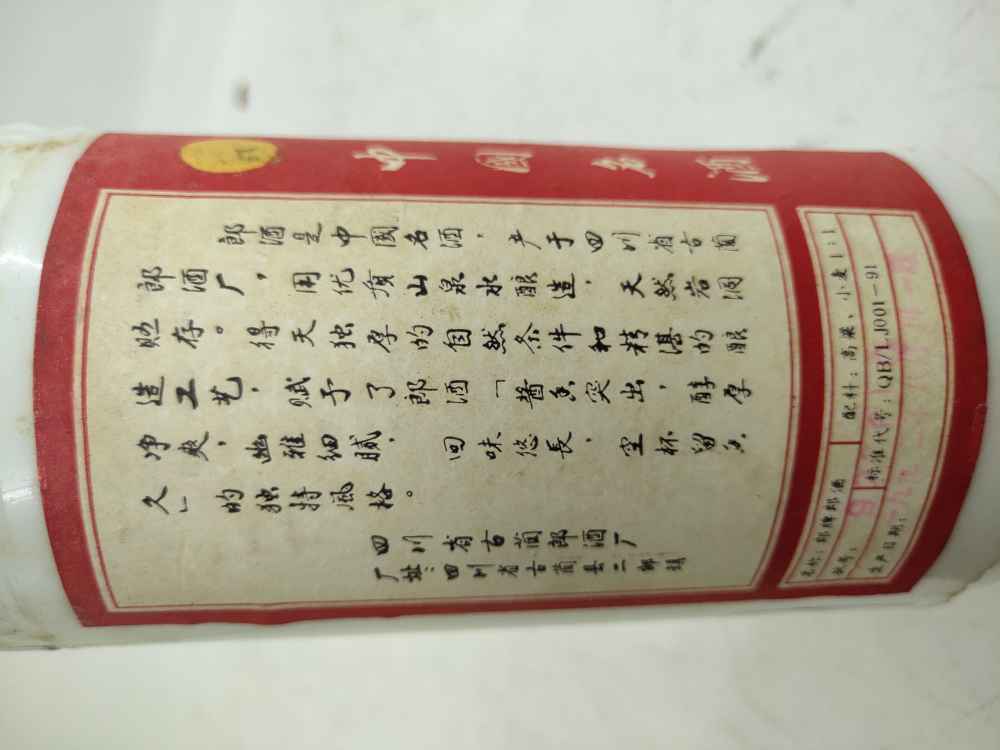 中国名酒
郎酒是中國名酒，产于四川省古蔺
郎酒厂，用优质山泉水酿造，天然岩洞
贮存。得天独厚的自然条件和精湛的酿
造工艺，赋予了郎酒「酱香突出，醇厚
净爽，幽雅细腻，回味悠長，空杯留香
久」的独特风格。
四川省古蔺郎酒厂
厂址：四川省古蔺县二郎镇
名称：郎牌郎酒
配料：高粱、小麦1:1
批号：
标准代号：QB/LJ001-91
生产日期：